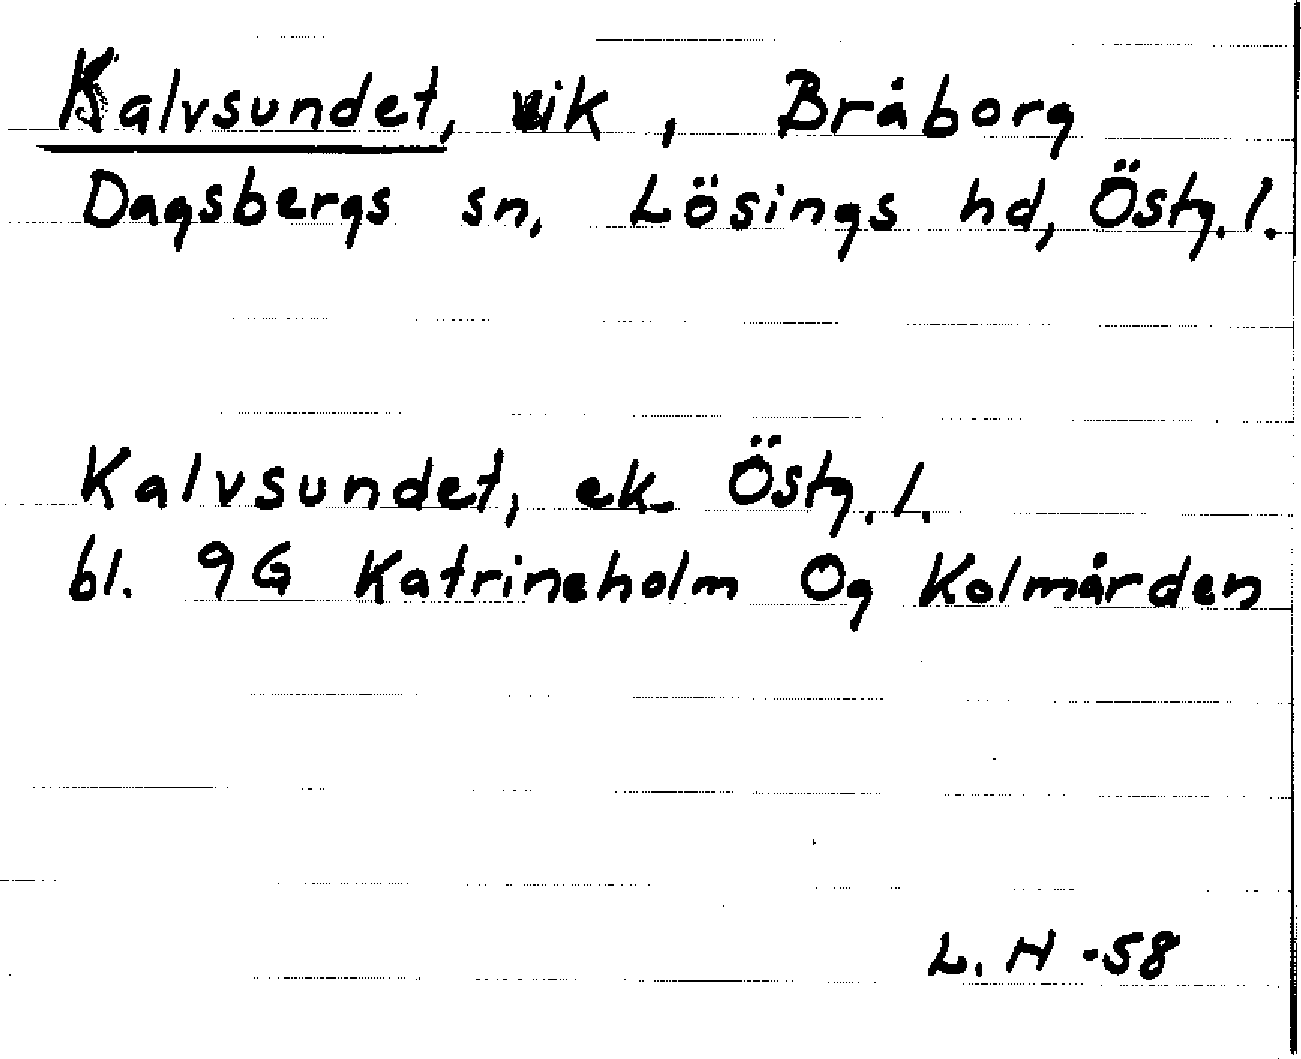 Kalvsundet, vik, Bråborg
Dagsbergs sn, Lösings hd, Östg. l.
Kalvsundet, ek. Östg. l.
bl. 9G Katrineholm Og Kolmården
L. H -58